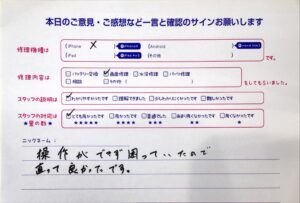 本日のご意見・ご感想など一言と確認のサインお願いします
修理機種は
(iPhone X) (Android
(iPad (その他 )
です。
修理内容は
□バッテリー交換 ☑画面修理 □水没修理 □パーツ修理
□相談 □その他( )
をしてもらいました。
スタッフの説明は
☑わかりやすかったです □理解できました □少しわかりにくかったです □難しかったです
スタッフの対応は
★星の数★
☑とても良かったです □良かったです □普通でした □あまり良くなかったです □良くなかったです
★★★★★ ★★★★ ★★★ ★★ ★
ニックネーム：
操作ができず困っていたので
直って良かったです。